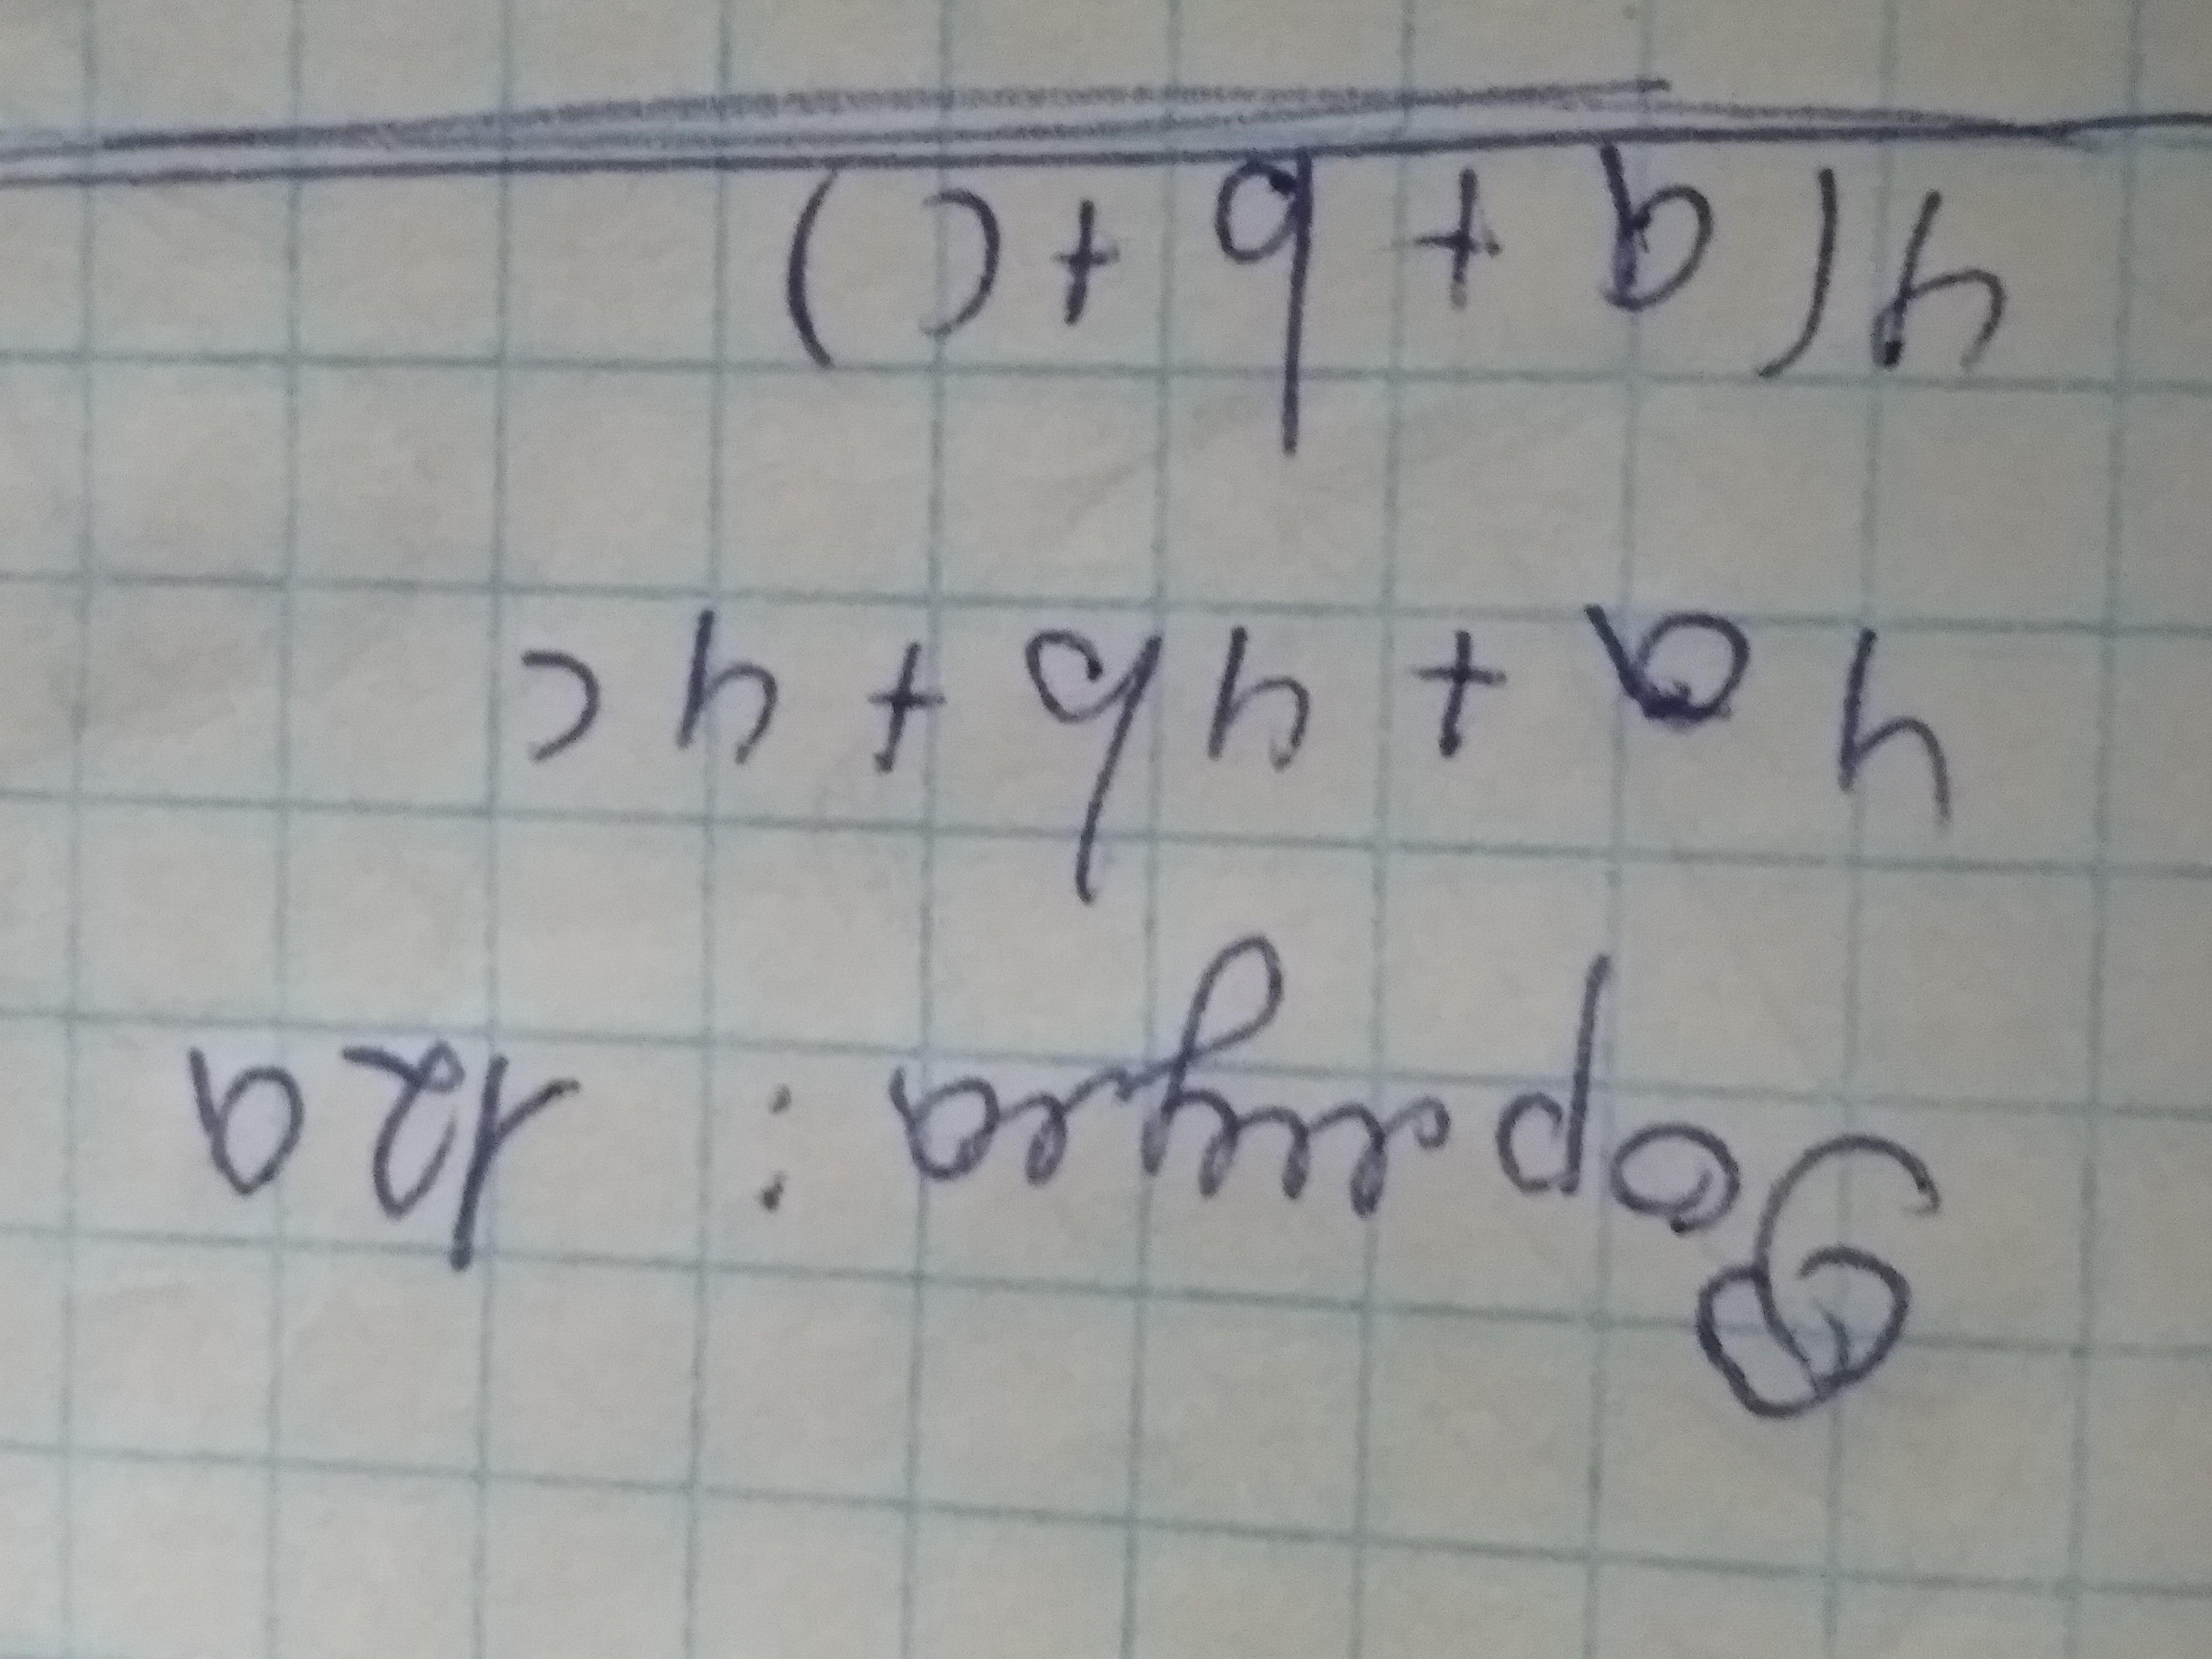 Формула : 12a
4a + 4b + 4c
4(a + b + c)